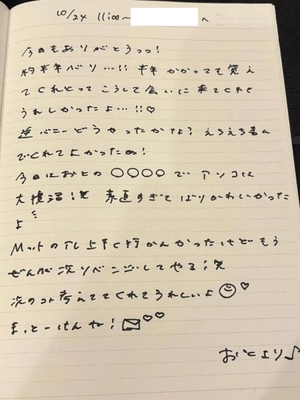 10/24 11:00〜 へ
今日もありがとうっっ!
約半年バリ…!! 半年かかっても覚え
てくれとってこうして会いに来てくれて
うれしかったよ…!!♡
逆バニーどうやったかな?えろえろ喜ん
でくれてよかったぁ!
今日におとの〇〇〇〇で アソコに
大 !笑 素直すぎてばりかわいかった
よ
Mっトの 上手く行かんかったけどもう
ぜんぶ次リベンジしてやる!笑
次のコト考えててくれてうれしいよ☺♡
まっとーけんね!✉♡♡
おとより♪